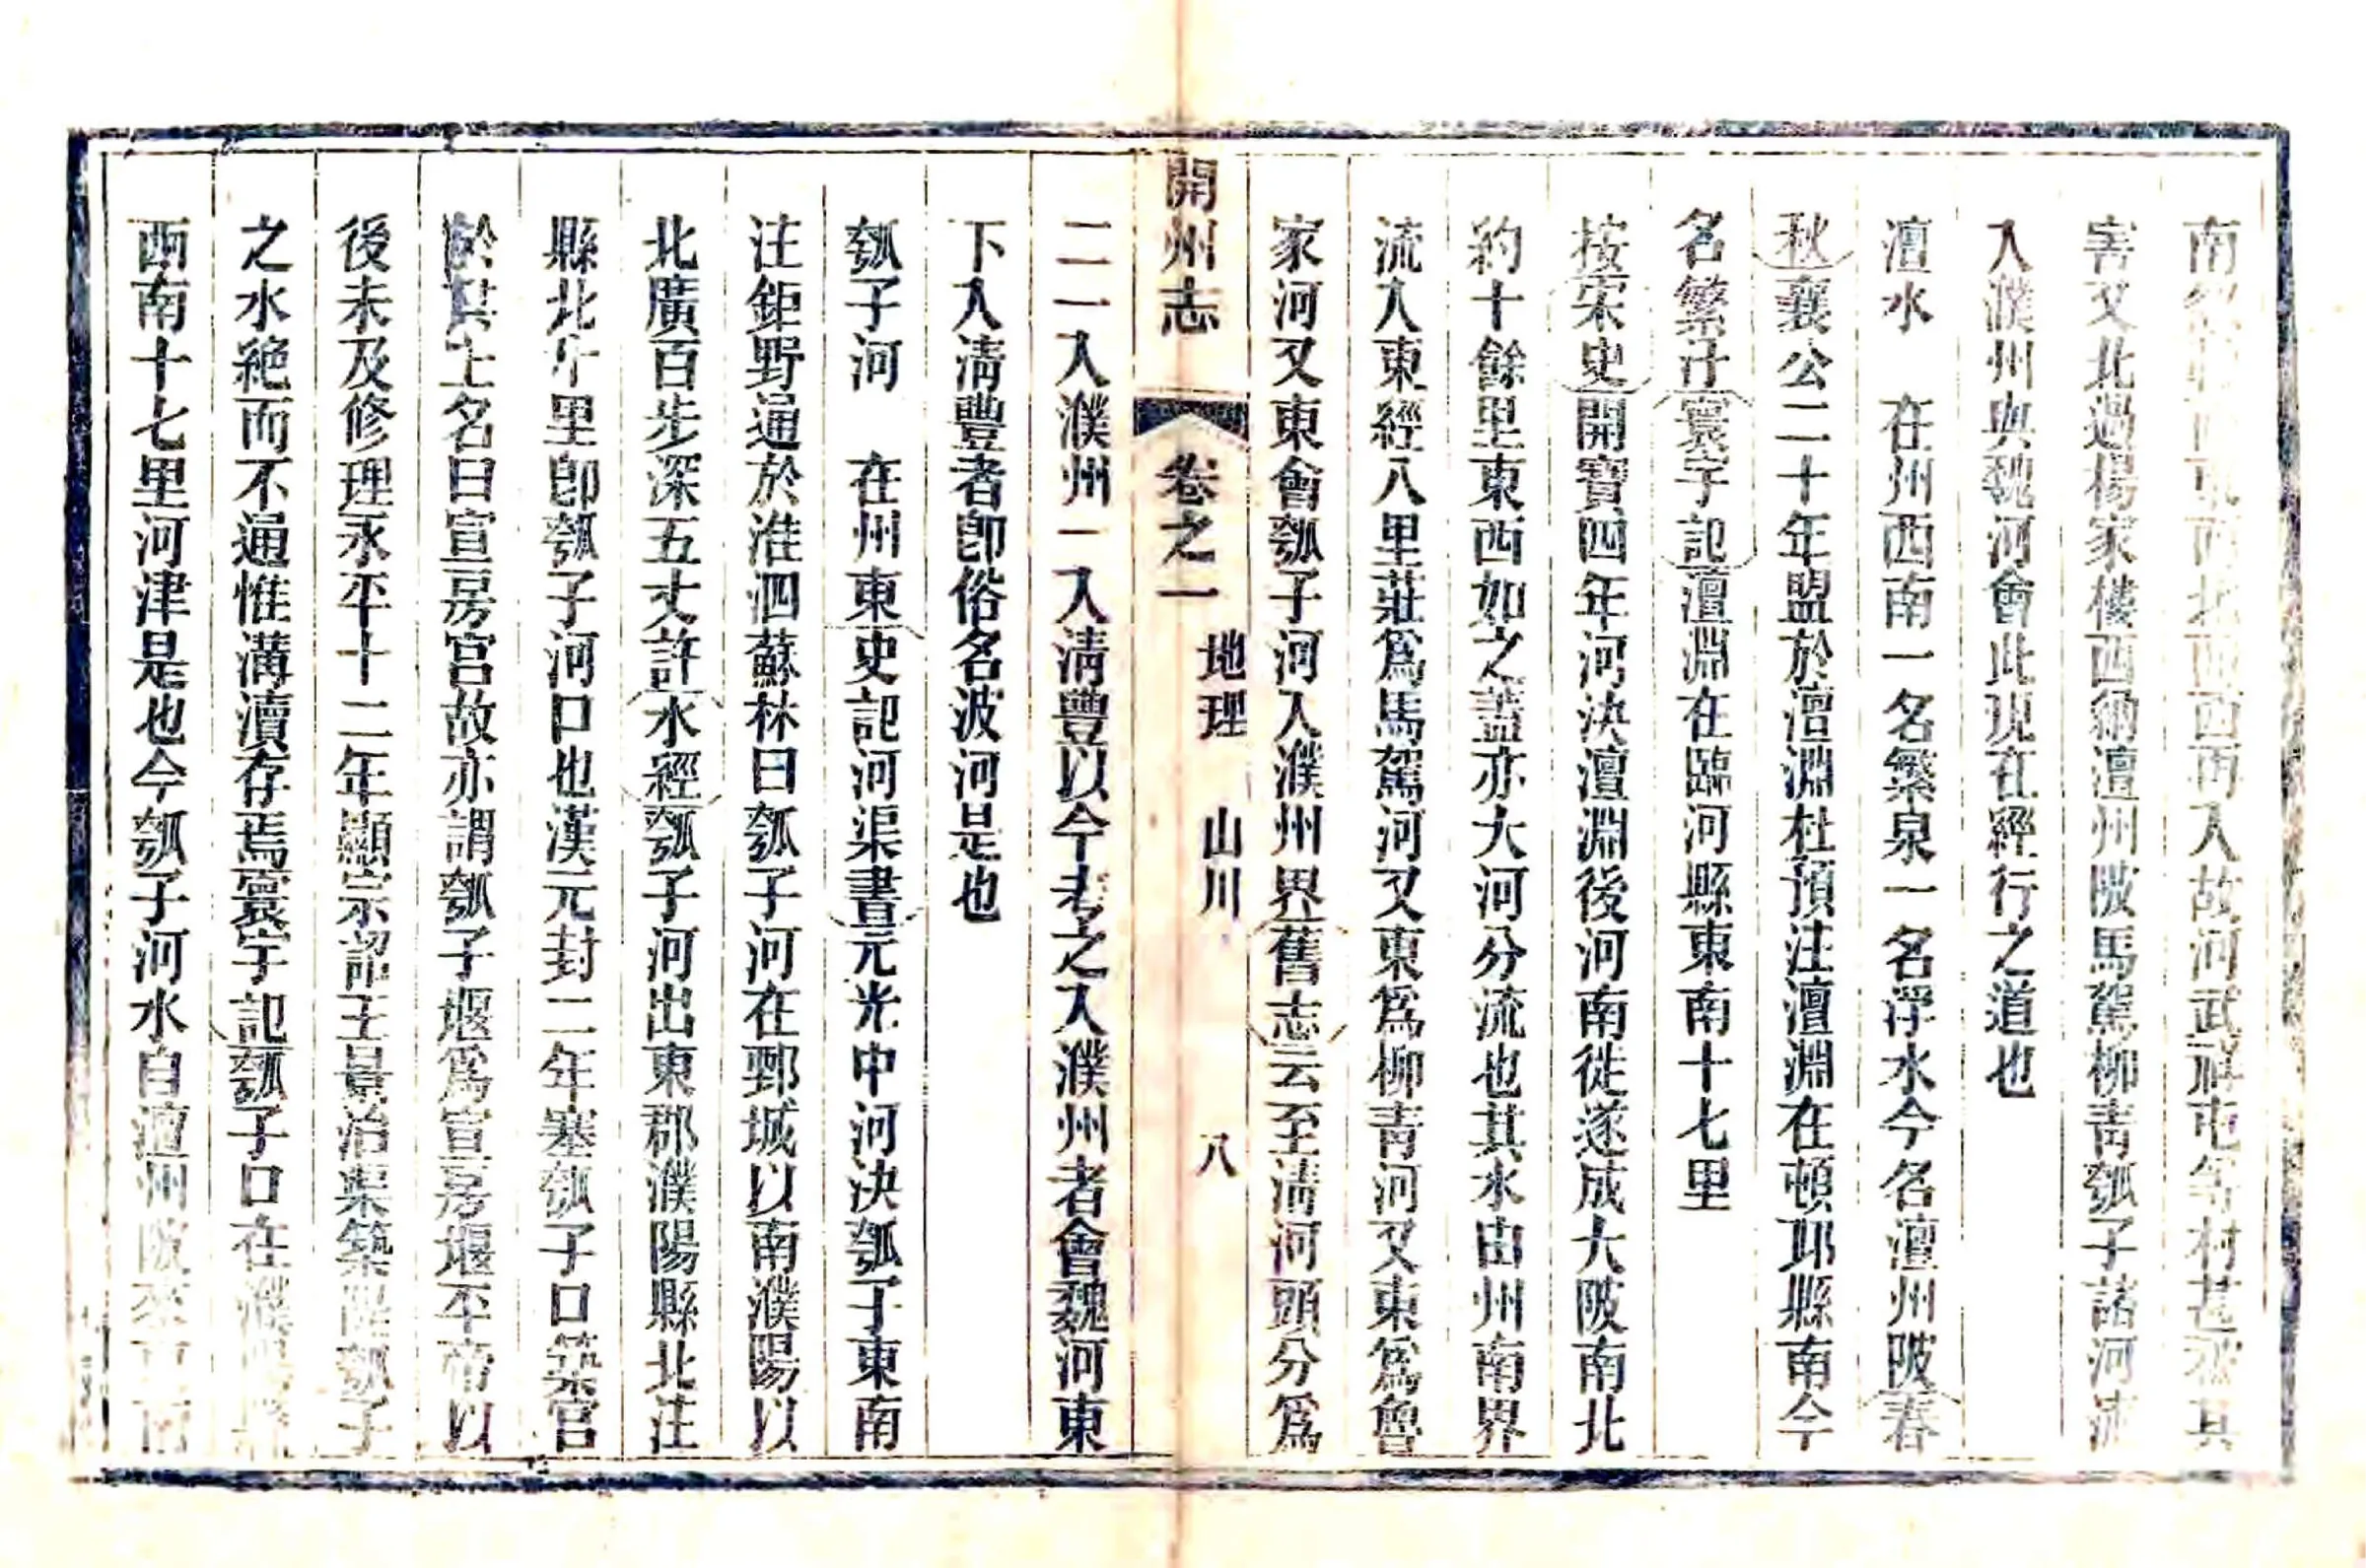 南入故河武祥屯等村甚被其
害又北過楊家樓西納澶州陂馬駕柳青瓠子諸河流
入濮州與魏河會此現在經行之道也
澶水　在州西南一名繁泉一名浮水今名澶州陂春
秋襄公二十年盟於澶淵杜預注澶淵在頓邱縣南今
名繁汙寰宇記澶淵在臨河縣東南十七里
按宋史開寶四年河決澶淵後河南徙遂成大陂南北
約十餘里東西如之蓋亦大河分流也其水由州南界
流入東經八里莊爲馬駕河又東爲柳青河又東爲魯
家河又東會瓠子河入濮州界舊志云至清河頭分爲
開州志　卷之一　地理　山川　八
二一入濮州一入清豐以今考之入濮州者會魏河東
下入清豐者卽俗名波河是也
瓠子河　在州東史記河渠書元光中河決瓠子東南
注鉅野通於淮泗蘇林曰瓠子河在鄄城以南濮陽以
北廣百步深五丈許水經瓠子河出東郡濮陽縣北注
縣北十里卽瓠子河口也漢元封二年塞瓠子口築宮
於其上名曰宣房宮故亦謂瓠子堰爲宣房堰平帝以
後未及修理永平十二年顯宗詔王景治渠築隄瓠子
之水絶而不通惟溝瀆存焉寰宇記瓠子口在濮陽縣
西南十七里河津是也今瓠子河水自澶州陂來東南